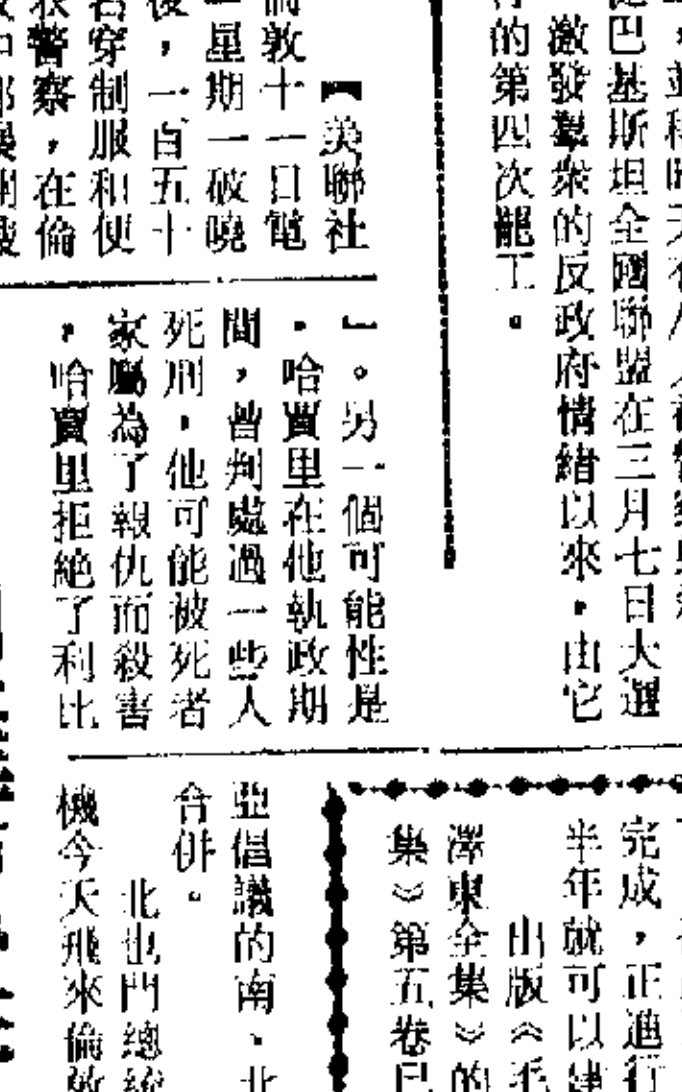 健巴基斯坦全國聯盟在三月七日大選
激發羣衆的反政府情緒以來，由它
的第四次罷工。
【美聯社
敦十一日電
星期一破曉
後，一百五十
穿制服和便
警察，在倫
」。另一個可能性是
，哈賈里在他執政期
間，曾判處過一些人
死刑，他可能被死者
家屬為了報仇而殺害
，哈賈里拒絶了利比
完成，正進行
半年就可以建
出版《毛
澤東全集》的
集》第五卷已
亞倡議的南、北
合併。
北也門總統
機今天飛來倫敦